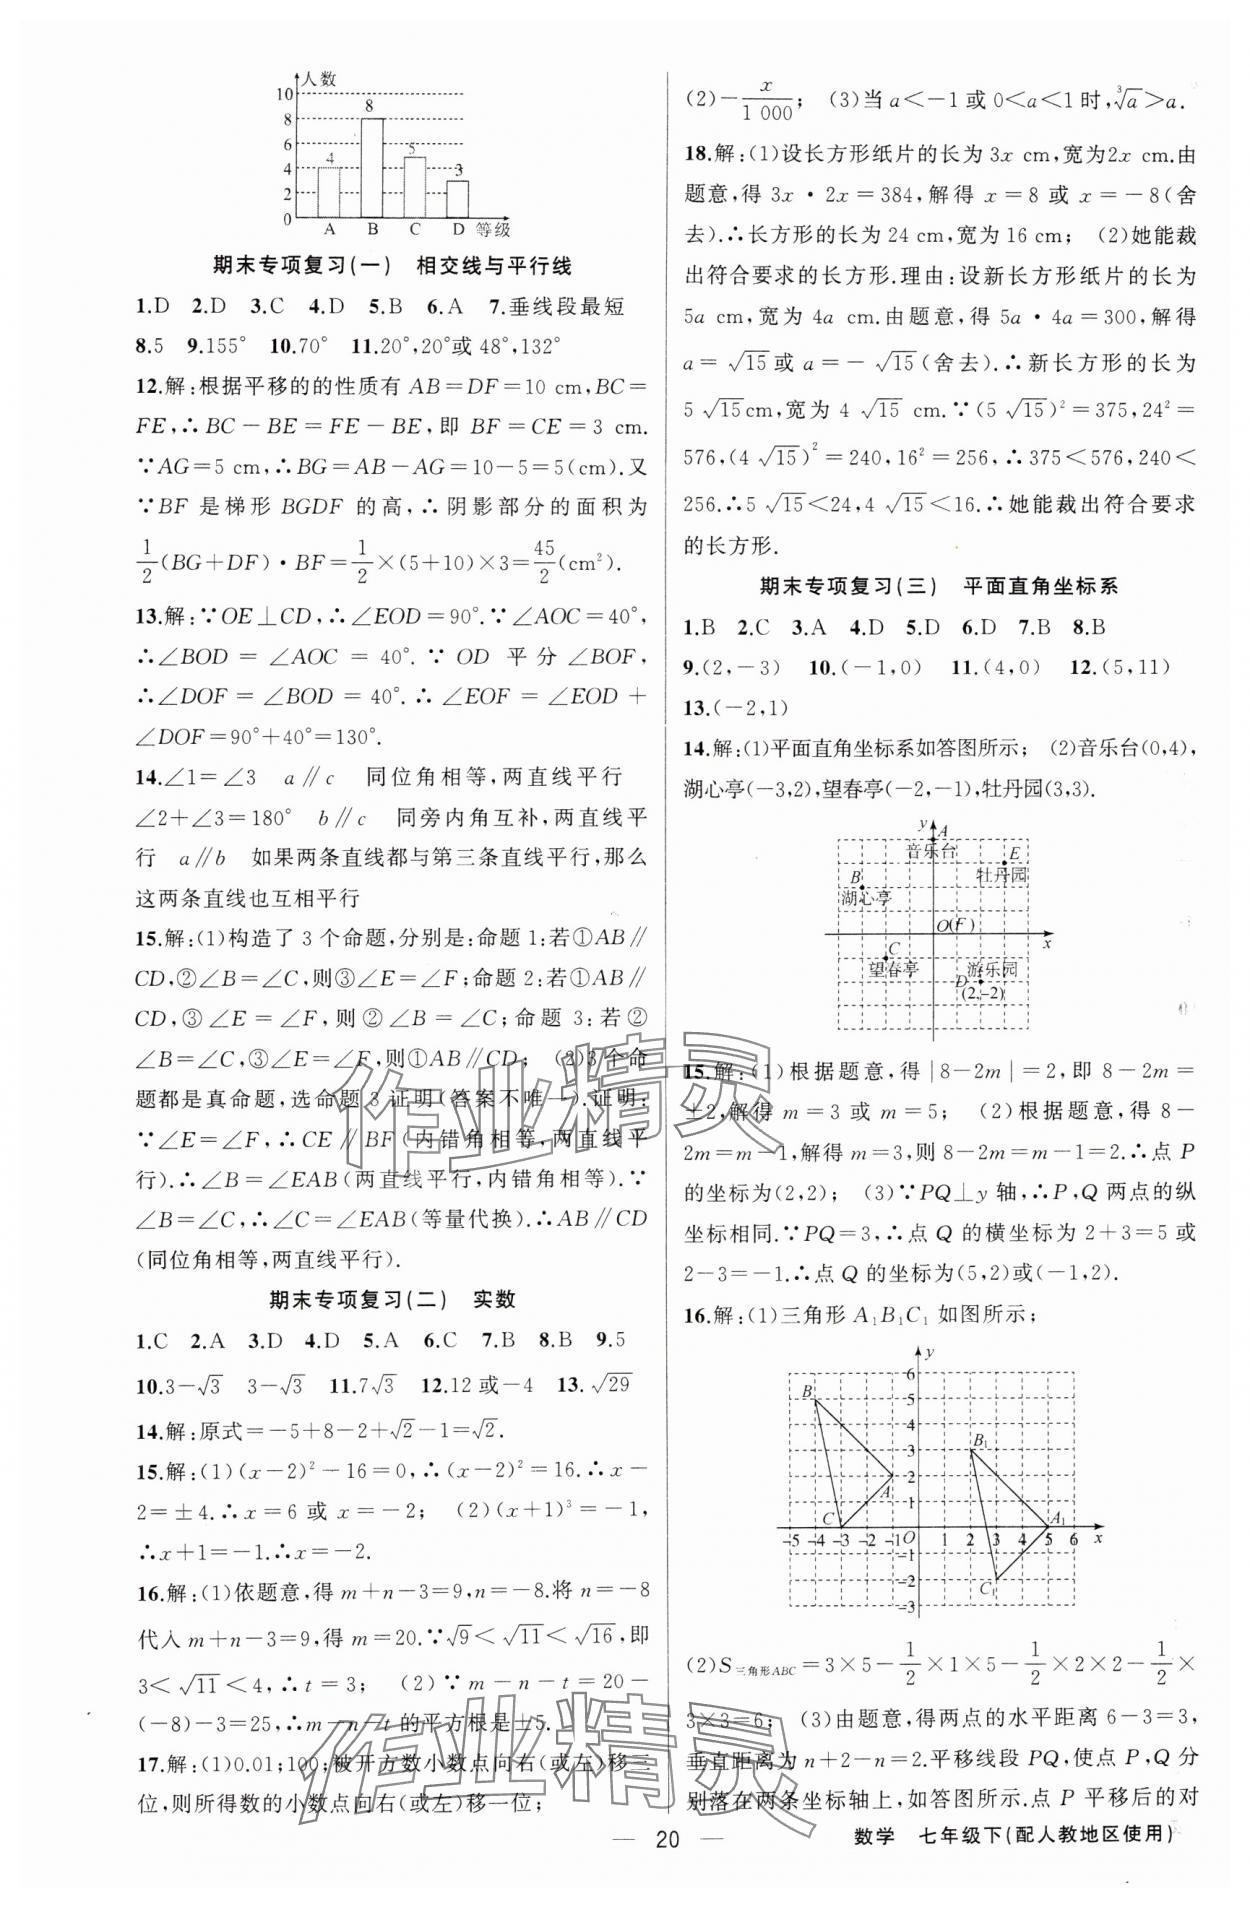 人数
10
8
6
4
2
0
4
8
5
3
A B C D 等级
期末专项复习(一) 相交线与平行线
1.D 2.D 3.C 4.D 5.B 6.A 7.垂线段最短
8.5 9.155° 10.70° 11.20°,20°或48°,132°
12.解:根据平移的的性质有 AB=DF=10 cm,BC=
FE,∴BC-BE=FE-BE,即 BF=CE=3 cm.
∵AG=5 cm,∴BG=AB-AG=10-5=5(cm).又
∵BF 是梯形 BGDF 的高,∴阴影部分的面积为
1/2(BG+DF)·BF=1/2×(5+10)×3=45/2(cm²).
13.解:∵OE⊥CD,∴∠EOD=90°.∵∠AOC=40°,
∴∠BOD=∠AOC=40°.∵OD 平分∠BOF,
∴∠DOF=∠BOD=40°.∴∠EOF=∠EOD+
∠DOF=90°+40°=130°.
14.∠1=∠3 a∥c 同位角相等,两直线平行
∠2+∠3=180° b∥c 同旁内角互补,两直线平
行 a∥b 如果两条直线都与第三条直线平行,那么
这两条直线也互相平行
15.解:(1)构造了3个命题,分别是:命题1:若①AB∥
CD,②∠B=∠C,则③∠E=∠F;命题2:若①AB∥
CD,③∠E=∠F,则②∠B=∠C;命题3:若②
∠B=∠C,③∠E=∠F,则①AB∥CD; (2)3个命
题都是真命题,选命题3证明(答案不唯一).证明:
∵∠E=∠F,∴CE∥BF(内错角相等,两直线平
行).∴∠B=∠EAB(两直线平行,内错角相等).∵
∠B=∠C,∴∠C=∠EAB(等量代换).∴AB∥CD
(同位角相等,两直线平行).
期末专项复习(二) 实数
1.C 2.A 3.D 4.D 5.A 6.C 7.B 8.B 9.5
10.3-√3 3-√3 11.7√3 12.12或-4 13.√29
14.解:原式=-5+8-2+√2-1=√2.
15.解:(1)(x-2)²-16=0,∴(x-2)²=16.∴x-
2=±4.∴x=6 或 x=-2; (2)(x+1)³=-1,
∴x+1=-1.∴x=-2.
16.解:(1)依题意,得 m+n-3=9,n=-8.将 n=-8
代入 m+n-3=9,得 m=20.∵√9<√11<√16,即
3<√11<4,∴t=3; (2)∵m-n-t=20-
(-8)-3=25,∴m-n-t的平方根是±5.
17.解:(1)0.01;100;被开方数小数点向右(或左)移三
位,则所得数的小数点向右(或左)移一位;
(2)-x/1 000; (3)当 a<-1或0<a<1时,³√a>a.
18.解:(1)设长方形纸片的长为 3x cm,宽为2x cm.由
题意,得 3x·2x=384,解得 x=8 或 x=-8(舍
去).∴长方形的长为24 cm,宽为16 cm; (2)她能裁
出符合要求的长方形.理由:设新长方形纸片的长为
5a cm,宽为 4a cm.由题意,得 5a·4a=300,解得
a=√15或a=-√15(舍去).∴新长方形纸片的长为
5√15cm,宽为 4√15 cm.∵(5√15)²=375,24²=
576,(4√15)²=240,16²=256,∴375<576,240<
256.∴5√15<24,4√15<16.∴她能裁出符合要求
的长方形.
期末专项复习(三) 平面直角坐标系
1.B 2.C 3.A 4.D 5.D 6.D 7.B 8.B
9.(2,-3) 10.(-1,0) 11.(4,0) 12.(5,11)
13.(-2,1)
14.解:(1)平面直角坐标系如答图所示; (2)音乐台(0,4),
湖心亭(-3,2),望春亭(-2,-1),牡丹园(3,3).
y
A
音乐台
E
牡丹园
B
湖心亭
O(F)
x
C
望春亭
游乐园
D
(2,-2)
15.解:(1)根据题意,得|8-2m|=2,即 8-2m=
±2,解得 m=3 或 m=5; (2)根据题意,得 8-
2m=m-1,解得 m=3,则 8-2m=m-1=2.∴点 P
的坐标为(2,2); (3)∵PQ⊥y 轴,∴P,Q 两点的纵
坐标相同.∵PQ=3,∴点 Q 的横坐标为 2+3=5 或
2-3=-1.∴点 Q 的坐标为(5,2)或(-1,2).
16.解:(1)三角形 A₁B₁C₁ 如图所示;
y
6
5
4
3
2
1
B
B₁
A
C
A₁
-5 -4 -3 -2 -1 O 1 2 3 4 5 6 x
-1
-2
-3
C₁
(2)S三角形ABC=3×5-1/2×1×5-1/2×2×2-1/2×
3×3=6; (3)由题意,得两点的水平距离 6-3=3,
垂直距离为 n+2-n=2.平移线段 PQ,使点 P,Q 分
别落在两条坐标轴上,如答图所示.点 P 平移后的对
作业精灵
作业精灵
— 20 —
数学 七年级下(配人教地区使用)